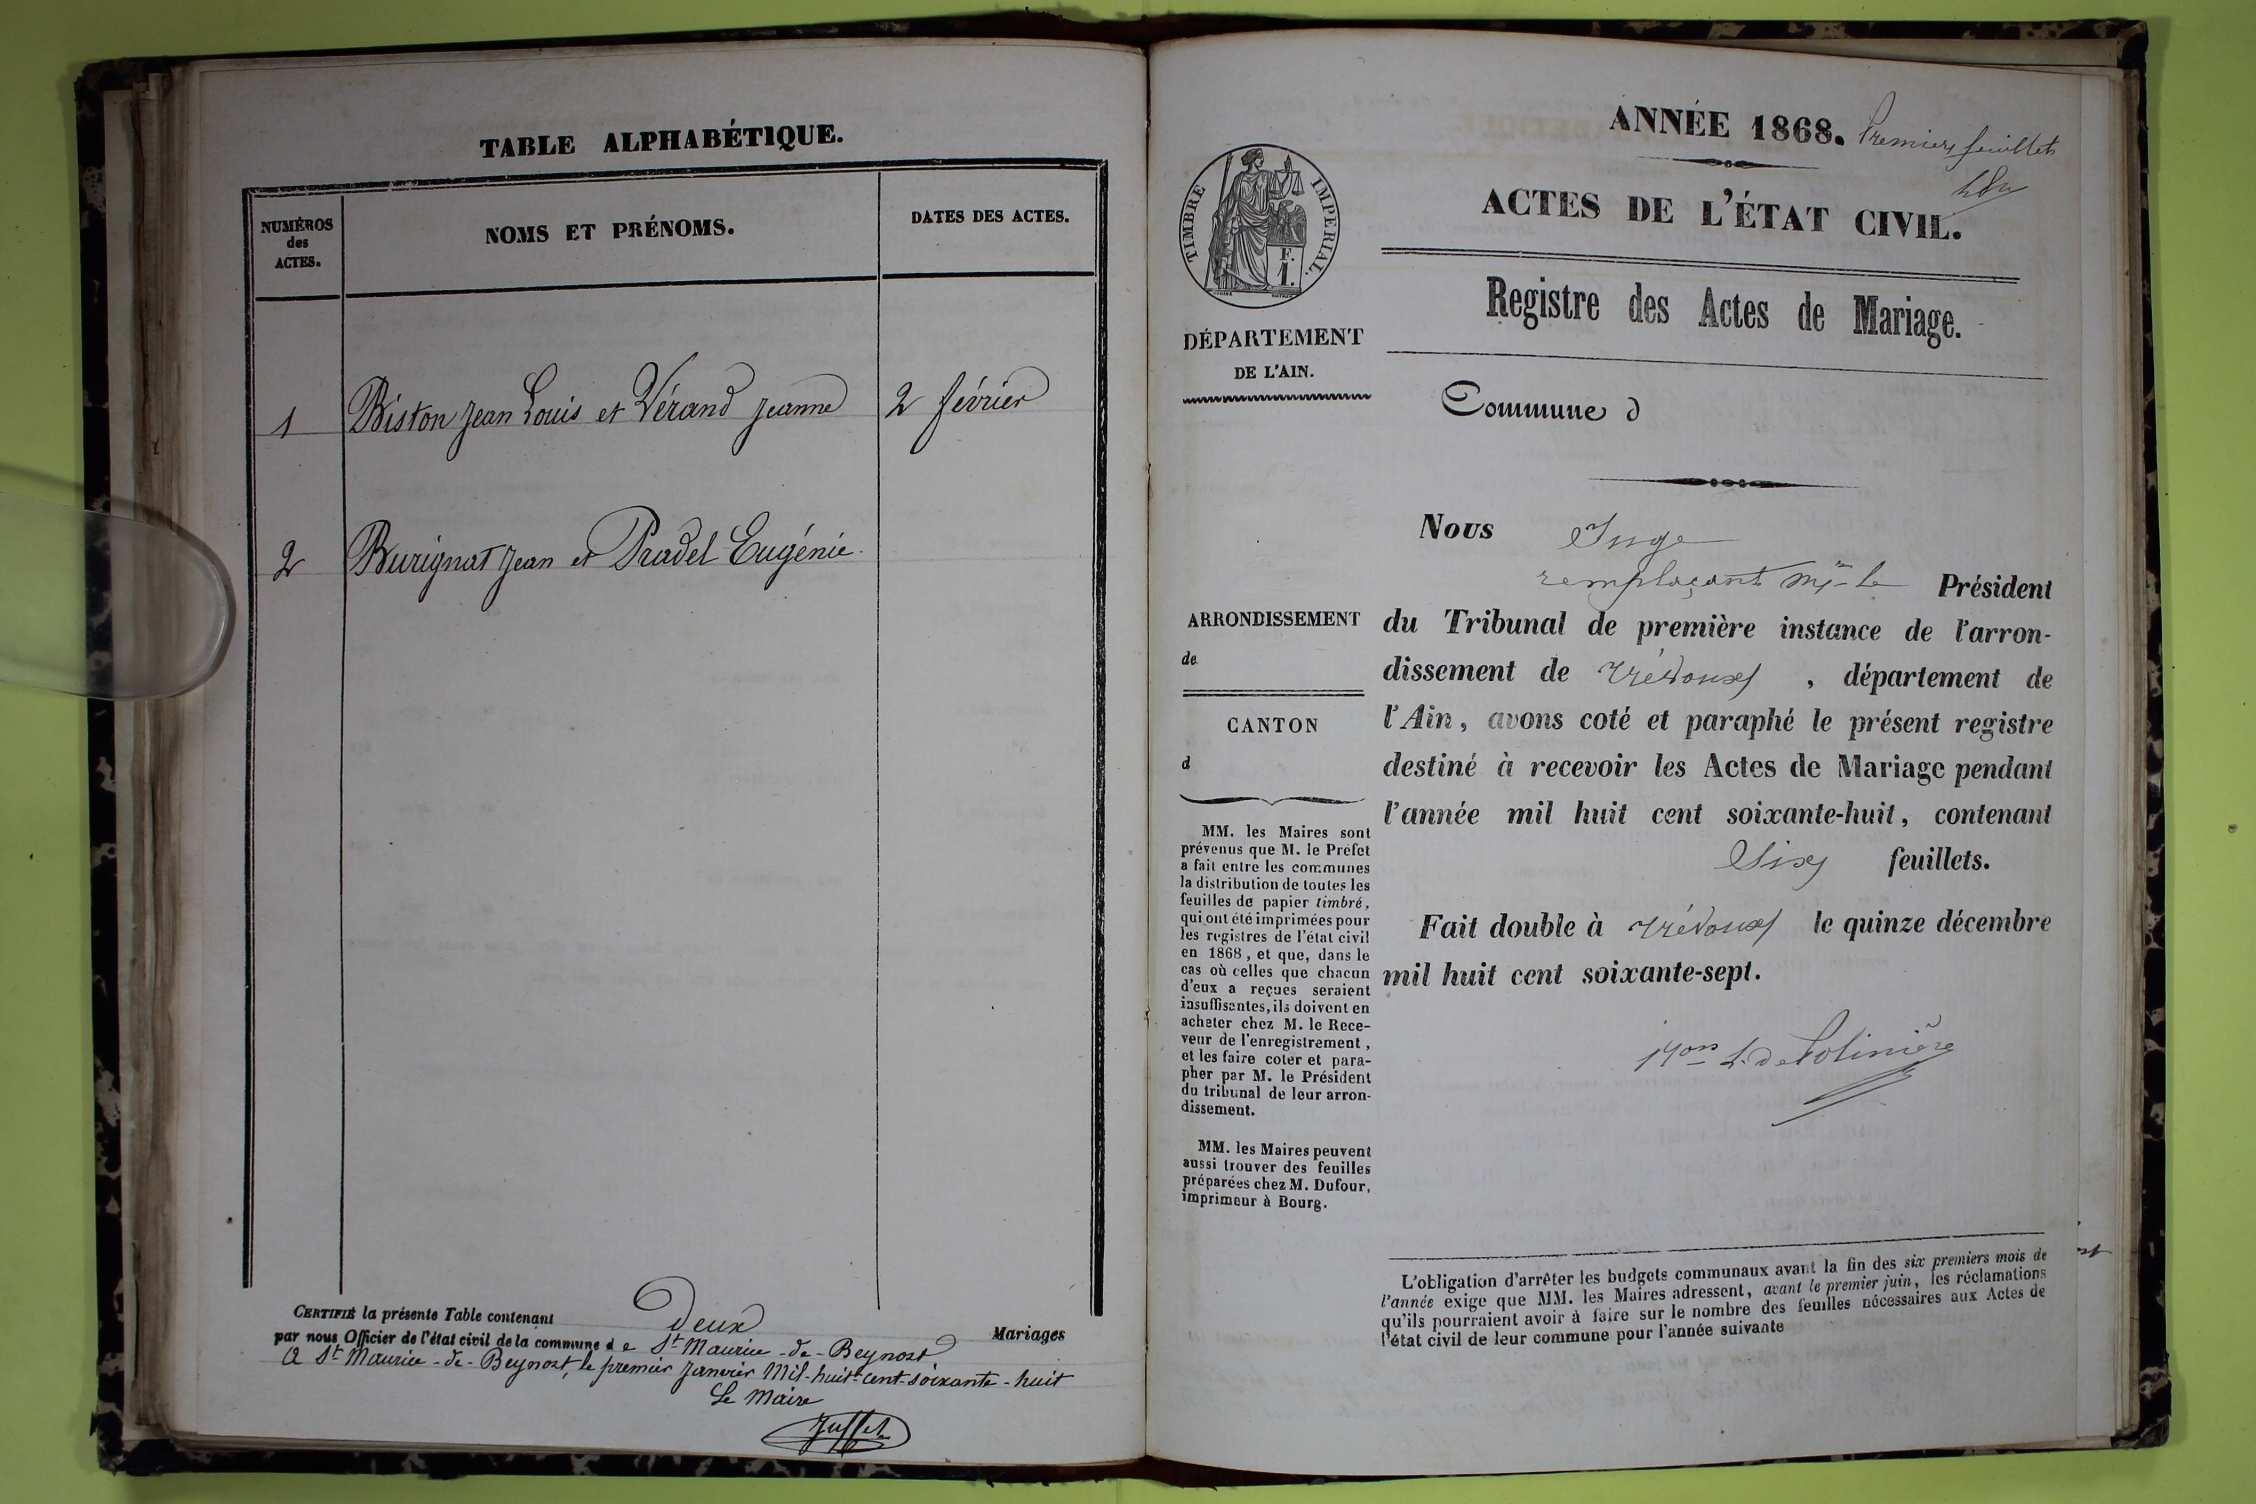 TABLE ALPHABÉTIQUE.
NUMÉROS
des
ACTES.
NOMS ET PRÉNOMS.
DATES DES ACTES.
1 Biston Jean Louis et Vérand Jeanne 2 février
2 Burignat Jean et Pradel Eugénie
CERTIFIÉ la présente Table contenant Deux Mariages
par nous Officier de l'état civil de la commune de St Maurice-de-Beynost
A St Maurice-de-Beynost, le premier Janvier Mil-huit-cent-soixante-huit
Le Maire
ANNÉE 1868. Premier feuillet
ACTES DE L'ÉTAT CIVIL.
Registre des Actes de Mariage.
TIMBRE IMPÉRIAL.
F.
1.
DÉPARTEMENT
DE L'AIN.
Commune d
ARRONDISSEMENT
de
CANTON
d
MM. les Maires sont
prévenus que M. le Préfet
a fait entre les communes
la distribution de toutes les
feuilles de papier timbré,
qui ont été imprimées pour
les registres de l'état civil
en 1868, et que, dans le
cas où celles que chacun
d'eux a reçues seraient
insuffisantes, ils doivent en
acheter chez M. le Rece-
veur de l'enregistrement,
et les faire coter et para-
pher par M. le Président
du tribunal de leur arron-
dissement.
MM. les Maires peuvent
aussi trouver des feuilles
préparées chez M. Dufour,
imprimeur à Bourg.
Nous Juge
remplaçant Mr le Président
du Tribunal de première instance de l'arron-
dissement de Trévoux, département de
l'Ain, avons coté et paraphé le présent registre
destiné à recevoir les Actes de Mariage pendant
l'année mil huit cent soixante-huit, contenant
Six feuillets.
Fait double à Trévoux le quinze décembre
mil huit cent soixante-sept.
L'obligation d'arrêter les budgets communaux avant la fin des six premiers mois de
l'année exige que MM. les Maires adressent, avant le premier juin, les réclamations
qu'ils pourraient avoir à faire sur le nombre des feuilles nécessaires aux Actes de
l'état civil de leur commune pour l'année suivante